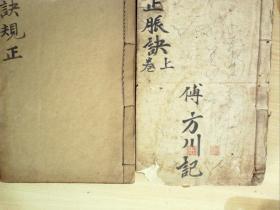 訣規正
正脹訣上
卷
傅方川記